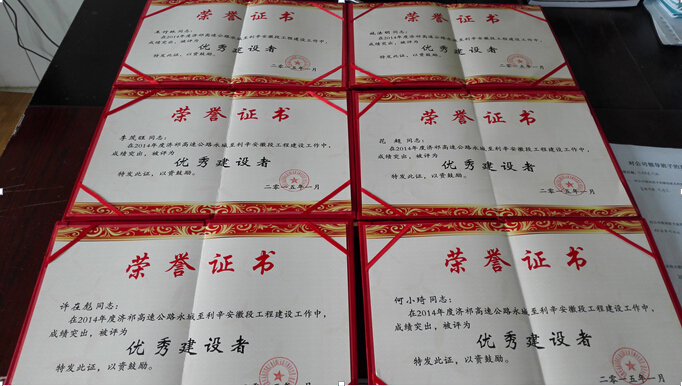 荣誉证书
同志:
在2014年度济祁高速公路永城至利辛安徽段工程建设工作中,
成绩突出,被评为
优秀建设者
特发此证,以资鼓励。
二〇一五年一月
荣誉证书
同志:
在2014年度济祁高速公路永城至利辛安徽段工程建设工作中,
成绩突出,被评为
优秀建设者
特发此证,以资鼓励。
二〇一五年一月
荣誉证书
李茂強同志:
在2014年度济祁高速公路永城至利辛安徽段工程建设工作中,
成绩突出,被评为
优秀建设者
特发此证,以资鼓励。
二〇一五年一月
荣誉证书
范超同志:
在2014年度济祁高速公路永城至利辛安徽段工程建设工作中,
成绩突出,被评为
优秀建设者
特发此证,以资鼓励。
二〇一五年一月
荣誉证书
许在彪同志:
在2014年度济祁高速公路永城至利辛安徽段工程建设工作中,
成绩突出,被评为
优秀建设者
特发此证,以资鼓励。
荣誉证书
何小琦同志:
在2014年度济祁高速公路永城至利辛安徽段工程建设工作中,
成绩突出,被评为
优秀建设者
特发此证,以资鼓励。